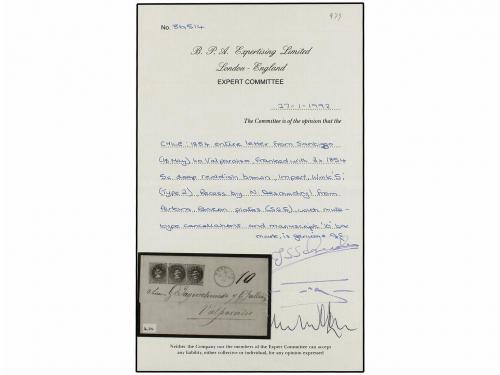 477
No. 36,514
B. P. A. Expertising Limited
London - England
EXPERT COMMITTEE
27-1-1992
The Committee is of the opinion that the
CHILE: 1854 entire letter from Santiago
(16 May) to Valparaiso franked with 3x 1854
5c deep reddish brown imperf Wmk '5'
(Type 2) Recess by N. Desmadryl from
Perkins Bacon plates (SG5) with mute-
type cancellations and manuscript '10'
mark, is genuine
10
Valparaiso
Neither the Company nor the members of the Expert Committee can accept
any liability, either collective or individual, for any opinion expressed